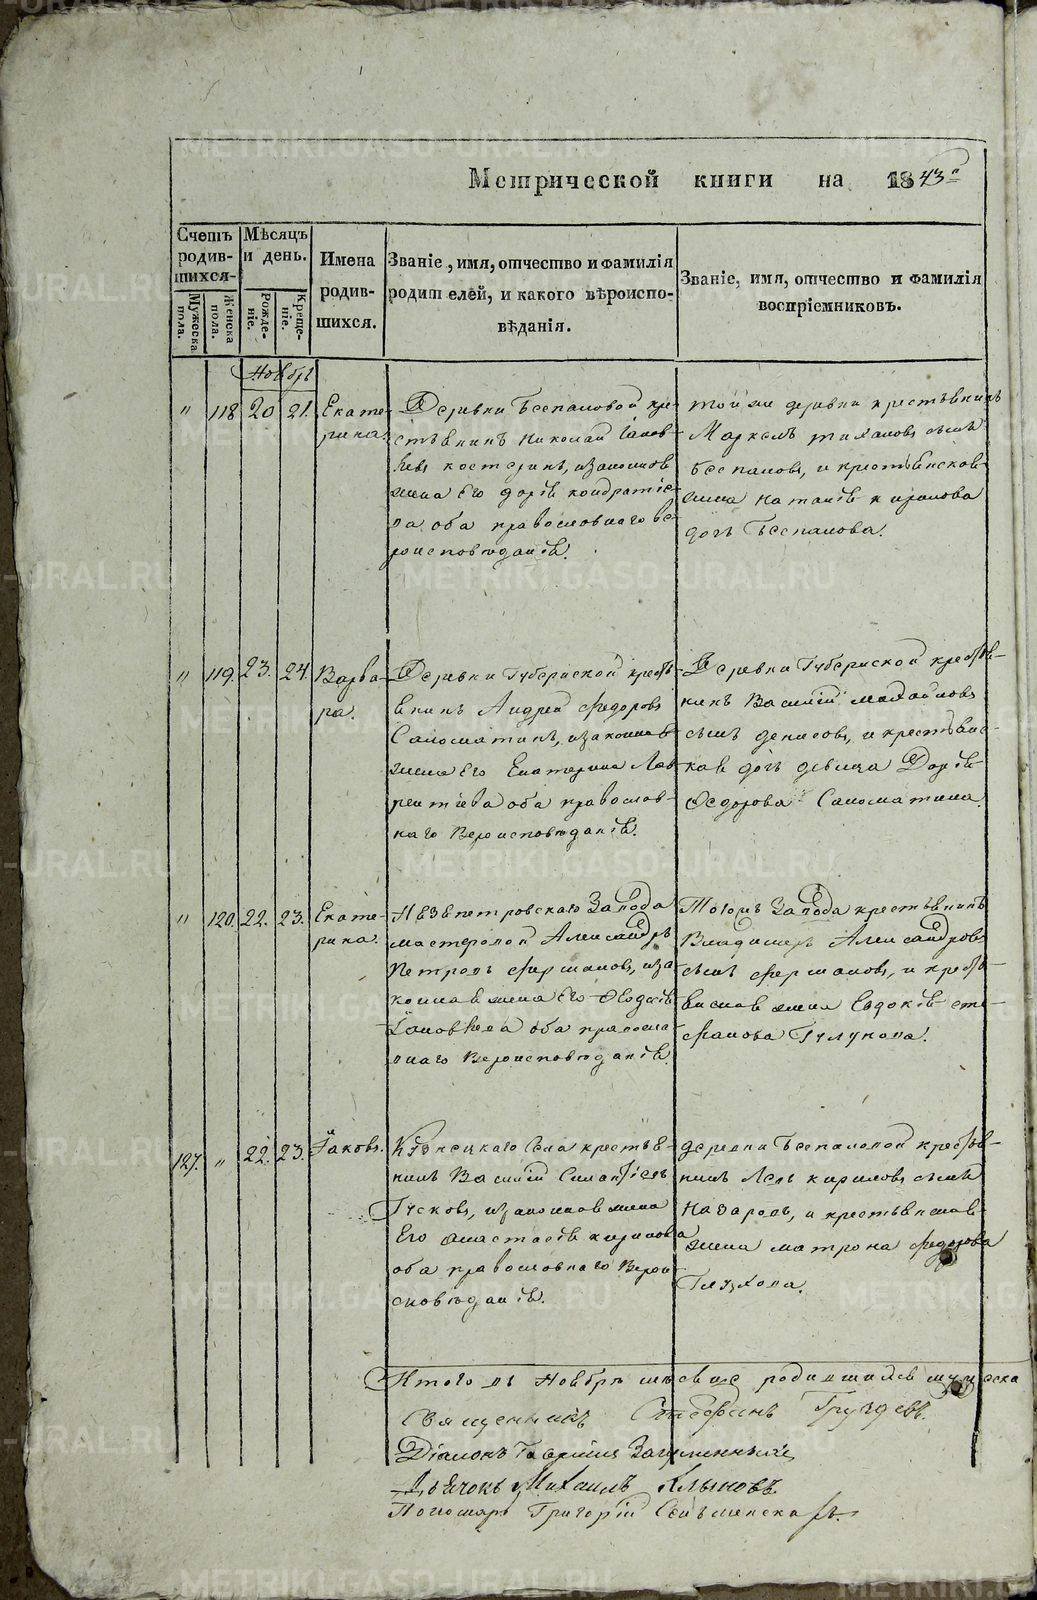 Метрической книги на 1843й
Счетъ родив-шихся.
Мужеска пола.
Женска пола.
Мѣсяцъ и день.
Рожде-ніе.
Креще-ніе.
Имена родив-шихся.
Званіе, имя, отчество и фамилія родителей, и какого вѣроиспо-вѣданія.
Званіе, имя, отчество и фамилія воспріемниковъ.
Ноябрь
" 118 20 21. Екате-
рина.
Деревни Беспаловой кре-
стьянинъ Николай
Костеринъ, изаконная
жена его Дарья Кондратье-
ва оба православнаго ве-
роисповѣданія.
той же деревни крестьянинъ
Маркелъ сынъ
Беспаловъ, и крестьянская
жена Наталія Кирилова
дочь Беспалова.
" 119. 23. 24. Варва-
ра.
Деревни Губернской кресть-
янинъ Андрей Федоровъ
Саломатинъ, изаконная
жена его Екатерина Лав-
рентіева оба православ-
наго Вероисповѣданія.
Деревни Губернской крестья-
нинъ Василій Михайловъ
сынъ Денисовъ, и крестьянс-
кая дочь девица Дарья
Федорова Саломатина.
" 120. 22. 23. Екате-
рина.
Незепетровскаго Завода
мастеровой Александръ
Петровъ Ферштановъ, иза-
конная жена его Феодосія
оба правосла-
внаго Вероисповѣданія.
Тогожъ Завода крестьянинъ
Владимеръ Александровъ
сынъ Ферштановъ, и крестья-
нская жена Евдокія Сте-
фанова
127. " 22. 23. Іаковъ.
села крестья-
нинъ Василій
Гусковъ, изаконная жена
Его Анастасія Кирилова
оба православнаго Верои-
сповѣданія.
деревни Беспаловой крестья-
нинъ Левъ Кириловъ сынъ
Назаровъ, и крестьянская
жена Матрона Федорова
Глухова.
Итого въ Ноябрѣ месяце родившихся мужеска
Священникъ Стефанъ Груздевъ.
Діаконъ Гавріилъ
Дьячокъ Михаилъ Клыковъ
Пономарь Григорій
METRIKI.GASO-URAL.RU